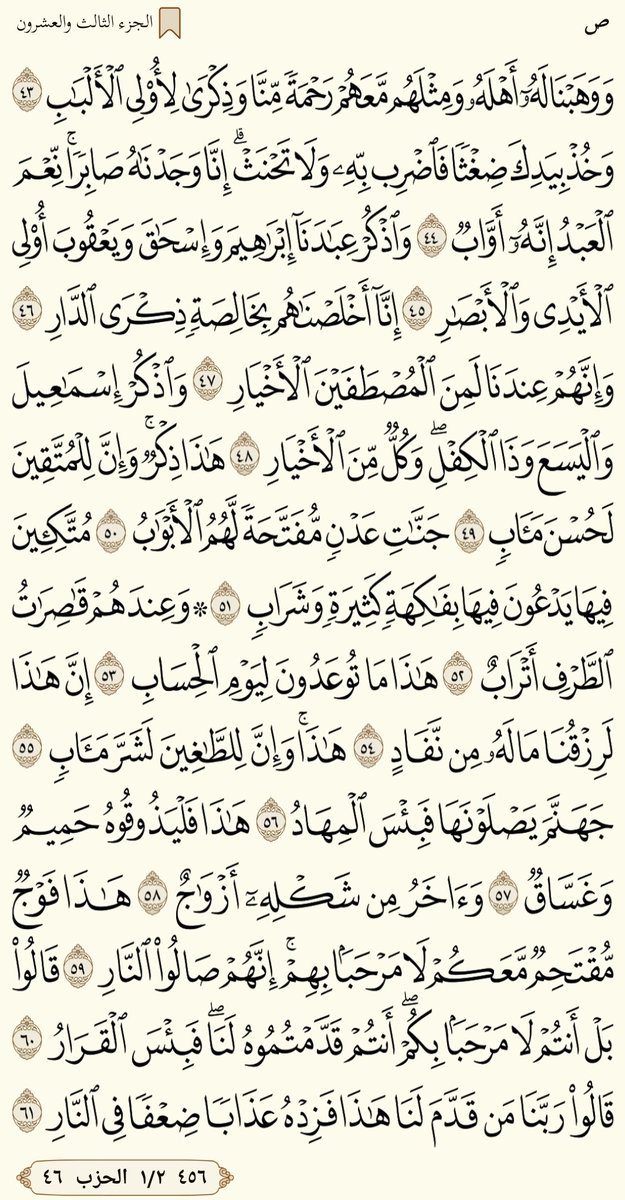 ص
الجزء الثالث والعشرون
وَوَهَبْنَا لَهُۥٓ أَهْلَهُۥ وَمِثْلَهُم مَّعَهُمْ رَحْمَةً مِّنَّا وَذِكْرَىٰ لِأُوْلِى ٱلْأَلْبَـٰبِ ٤٣
وَخُذْ بِيَدِكَ ضِغْثًا فَٱضْرِب بِّهِۦ وَلَا تَحْنَثْ ۗ إِنَّا وَجَدْنَـٰهُ صَابِرًا ۚ نِّعْمَ
ٱلْعَبْدُ إِنَّهُۥٓ أَوَّابٌ ٤٤ وَٱذْكُرْ عِبَـٰدَنَآ إِبْرَٰهِيمَ وَإِسْحَـٰقَ وَيَعْقُوبَ أُوْلِى
ٱلْأَيْدِى وَٱلْأَبْصَـٰرِ ٤٥ إِنَّآ أَخْلَصْنَـٰهُم بِخَالِصَةٍ ذِكْرَى ٱلدَّارِ ٤٦
وَإِنَّهُمْ عِندَنَا لَمِنَ ٱلْمُصْطَفَيْنَ ٱلْأَخْيَارِ ٤٧ وَٱذْكُرْ إِسْمَـٰعِيلَ
وَٱلْيَسَعَ وَذَا ٱلْكِفْلِ ۖ وَكُلٌّ مِّنَ ٱلْأَخْيَارِ ٤٨ هَـٰذَا ذِكْرٌ ۚ وَإِنَّ لِلْمُتَّقِينَ
لَحُسْنَ مَـَٔابٍ ٤٩ جَنَّـٰتِ عَدْنٍ مُّفَتَّحَةً لَّهُمُ ٱلْأَبْوَٰبُ ٥٠ مُتَّكِـِٔينَ
فِيهَا يَدْعُونَ فِيهَا بِفَـٰكِهَةٍ كَثِيرَةٍ وَشَرَابٍ ٥١ ۞ وَعِندَهُمْ قَـٰصِرَٰتُ
ٱلطَّرْفِ أَتْرَابٌ ٥٢ هَـٰذَا مَا تُوعَدُونَ لِيَوْمِ ٱلْحِسَابِ ٥٣ إِنَّ هَـٰذَا
لَرِزْقُنَا مَا لَهُۥ مِن نَّفَادٍ ٥٤ هَـٰذَا ۚ وَإِنَّ لِلطَّـٰغِينَ لَشَرَّ مَـَٔابٍ ٥٥
جَهَنَّمَ يَصْلَوْنَهَا فَبِئْسَ ٱلْمِهَادُ ٥٦ هَـٰذَا فَلْيَذُوقُوهُ حَمِيمٌ
وَغَسَّاقٌ ٥٧ وَءَاخَرُ مِن شَكْلِهِۦٓ أَزْوَٰجٌ ٥٨ هَـٰذَا فَوْجٌ
مُّقْتَحِمٌ مَّعَكُمْ لَا مَرْحَبًۢا بِهِمْ ۚ إِنَّهُمْ صَالُواْ ٱلنَّارِ ٥٩ قَالُواْ
بَلْ أَنتُمْ لَا مَرْحَبًۢا بِكُمْ ۖ أَنتُمْ قَدَّمْتُمُوهُ لَنَا ۖ فَبِئْسَ ٱلْقَرَارُ ٦٠
قَالُواْ رَبَّنَا مَن قَدَّمَ لَنَا هَـٰذَا فَزِدْهُ عَذَابًا ضِعْفًا فِى ٱلنَّارِ ٦١
٤٥٦ ١/٢ الحزب ٤٦